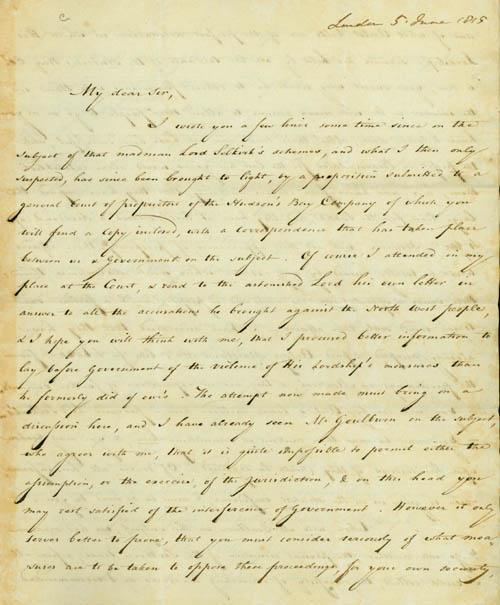 London 5 June 1815
My dear Sir,
I wrote you a few lines some time since on the
subject of that madman Lord Selkirk's schemes, and what I then only
suspected, has since been brought to light, by a proposition submitted to a
general Court of proprietors of the Hudson's Bay Company of which you
will find a Copy inclosed, with a correspondence that has taken place
between us & Government on the subject. Of course I attended in my
place at the Court, & read to the astonished Lord his own letter in
answer to all the accusations he brought against the North West people,
& I hope you will think with me, that I procured better information to
lay before Government of the violence of His Lordship's measures than
he formerly did of our's. The attempt now made must bring on a
discussion here, and I have already seen Mr Goulburn on the subject,
who agrees with me, that it is quite impossible to permit either the
assumption, or the exercise, of the jurisdiction, & on this head you
may rest satisfied of the interference of Government. However it only
serves better to prove, that you must consider seriously of what mea-
sures are to be taken to oppose these proceedings, for your own security,